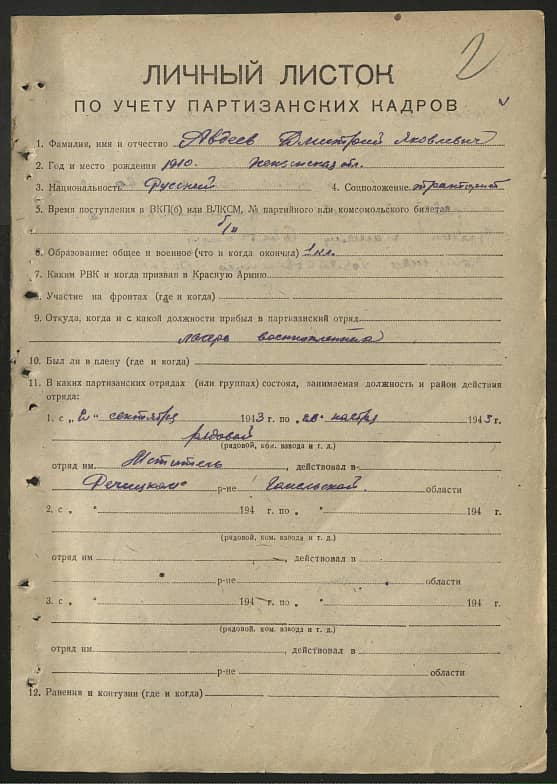 2
ЛИЧНЫЙ ЛИСТОК
ПО УЧЕТУ ПАРТИЗАНСКИХ КАДРОВ
1. Фамилия, имя и отчество Авдеев Дмитрий Яковлевич
2. Год и место рождения 1910. обл.
3. Национальность Русский 4. Соцположение тракторист
5. Время поступления в ВКП(б) или ВЛКСМ, № партийного или комсомольского билета
б/п
6. Образование: общее и военное (что и когда окончил) 1 кл.
7. Каким РВК и когда призван в Красную Армию
8. Участие на фронтах (где и когда)
9. Откуда, когда и с какой должности прибыл в партизанский отряд
лагерь военнопленных
10. Был ли в плену (где и когда)
11. В каких партизанских отрядах (или группах) состоял, занимаемая должность и район действия
отряда:
1. с „ " сентября 1943 г. по „28" 1943 г.
рядовой
(рядовой, ком. взвода и т. д.)
отряд им. Мститель, действовал в
Речицком р-не Гомельской области
2. с „ " 194 г. по „ " 194 г.
(рядовой, ком. взвода и т. д.)
отряд им , действовал в
р-не области
3. с „ " 194 г. по „ " 194 г.
(рядовой, ком. взвода и т. д.)
отряд им , действовал в
р-не области
12. Ранения и контузии (где и когда)